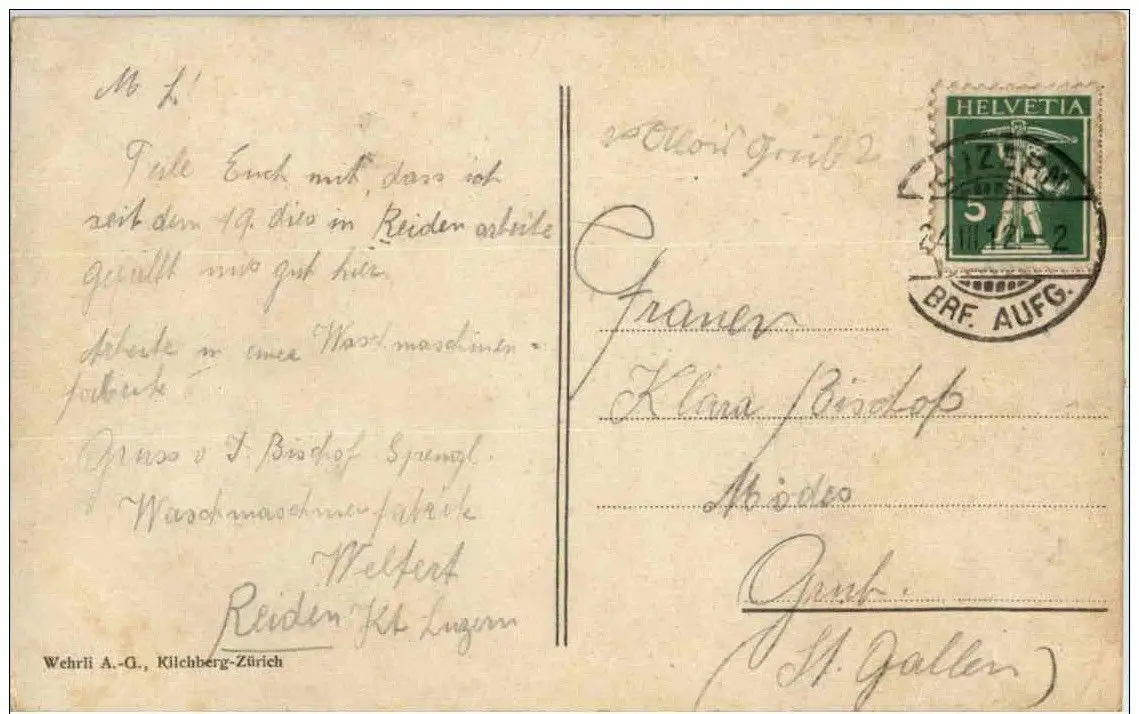 M L!
Teile Euch mit, dass ich
seit dem 19. dies in Reiden arbeite
gefällt mir gut hier.
Arbeite in einer Waschmaschinen-
fabrik.
Gruss v J. Bischof Spengl.
Waschmaschinenfabrik
Welfert
Reiden Kt. Luzern
Wehrli A.-G., Kilchberg-Zürich
HELVETIA
5
LUZERN
III 12 - 2
BRF. AUFG.
Grub
Klara Bischof
Modes
Grub.
(St. Gallen)